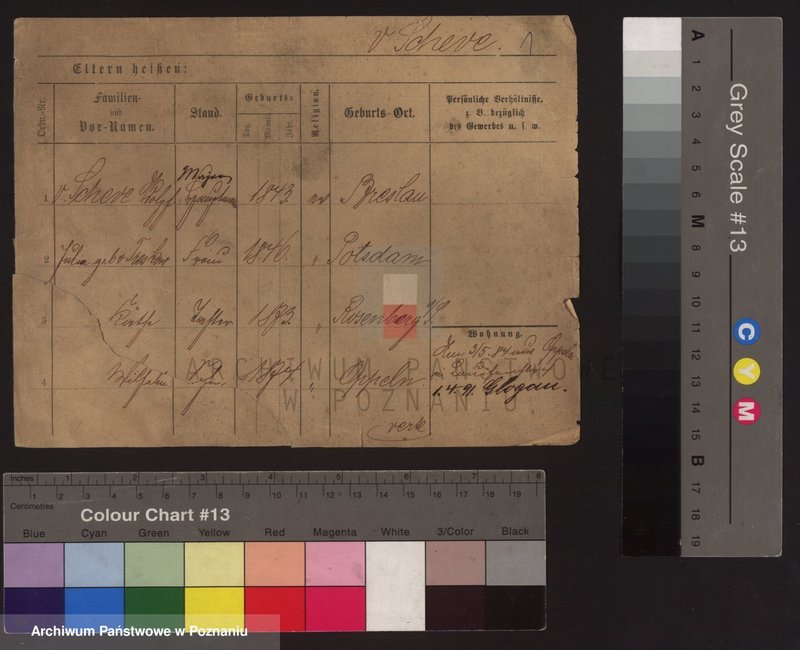 v Scheve.
Eltern heißen:
Ordn.-Nr.
Familien-
und
Vor-Namen.
Stand.
Geburts-
Tag.
Monat.
Jahr.
Religion.
Geburts-Ort.
Persönliche Verhältnisse,
z. B. bezüglich
des Gewerbes u. s. w.
Major
1 v. Scheve 1843. ev Breslau
2 Julia geb v Treskow Frau 1846. " Potsdam
3 Käthe Tochter 1873. " Rosenberg O/S.
Wohnung.
Am 3/5. 84 aus Oppeln
4 Wilhelm Sohn 1874. " Oppeln
1. 4. 91. Glogau.
verte
ARCHIWUM PAŃSTWOWE
W POZNANIU
Grey Scale #13
A 1 2 3 4 5 6 M 8 9 10 11 12 13 14 15 B 17 18 19
C Y M
Inches 1 2 3 4 5 6 7 8
Centimetres 1 2 3 4 5 6 7 8 9 10 11 12 13 14 15 16 17 18 19
Colour Chart #13
Blue Cyan Green Yellow Red Magenta White 3/Color Black
Archiwum Państwowe w Poznaniu